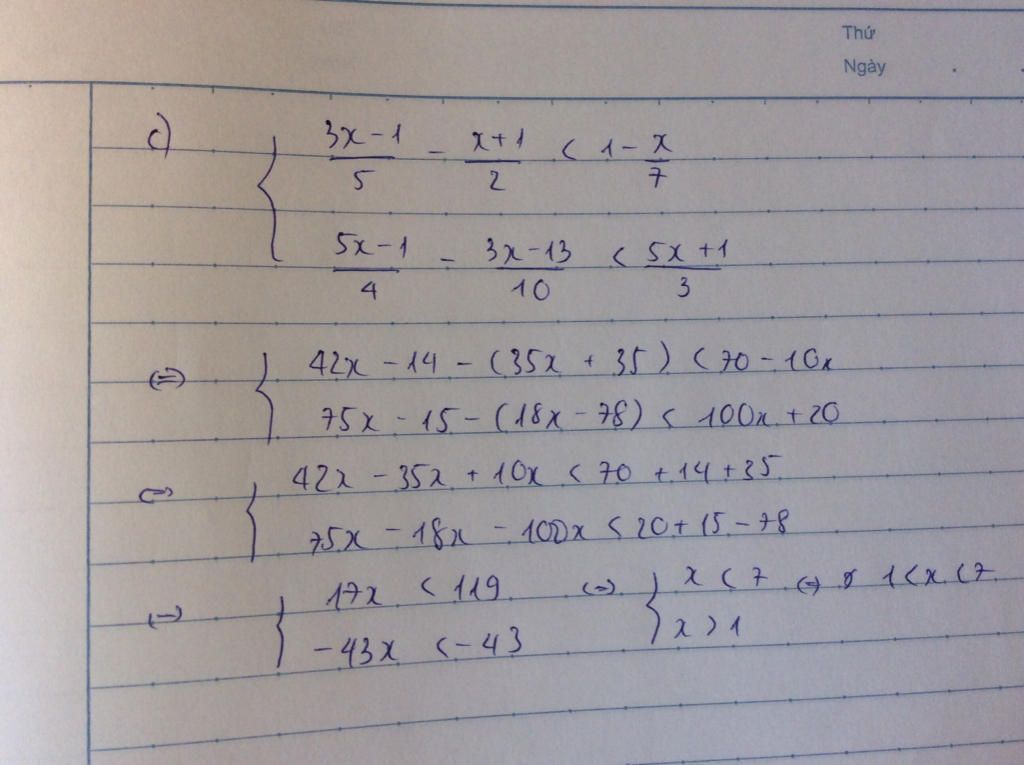 Thứ
Ngày
c) { (3x-1)/5 - (x+1)/2 < 1 - x/7
(5x-1)/4 - (3x-13)/10 < (5x+1)/3
⇔ { 42x - 14 - (35x + 35) < 70 - 10x
75x - 15 - (18x - 78) < 100x + 20
⇔ { 42x - 35x + 10x < 70 + 14 + 35
75x - 18x - 100x < 20 + 15 - 78
⇔ { 17x < 119 ⇔ { x < 7 ⇔ 1 < x < 7
-43x < -43 x > 1